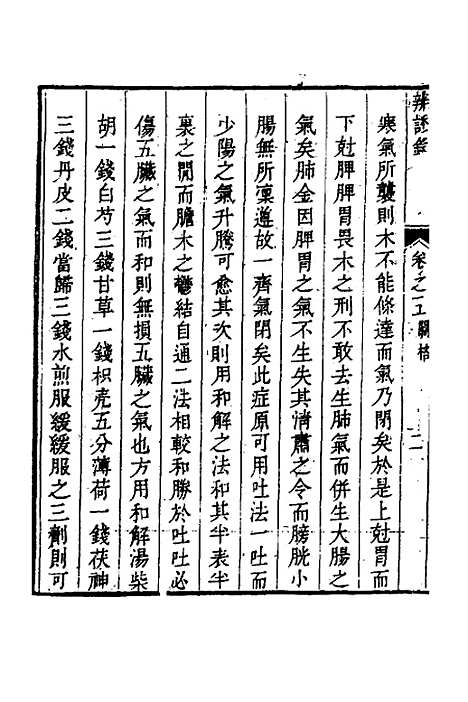 辨證錄
卷之五關格
二
寒氣所襲則木不能條達而氣乃閉矣於是上尅胃而
下尅脾脾胃畏木之刑不敢去生肺氣而併生大腸之
氣矣肺金因脾胃之氣不生失其清肅之令而膀胱小
腸無所凜遵故一齊氣閉矣此症原可用吐法一吐而
少陽之氣升騰可愈其次則用和解之法和其半表半
裏之間而膽木之鬱結自通二法相較和勝於吐吐必
傷五臟之氣而和則無損五臟之氣也方用和解湯柴
胡一錢白芍三錢甘草一錢枳壳五分薄荷一錢茯神
三錢丹皮二錢當歸三錢水煎服緩緩服之三劑則可